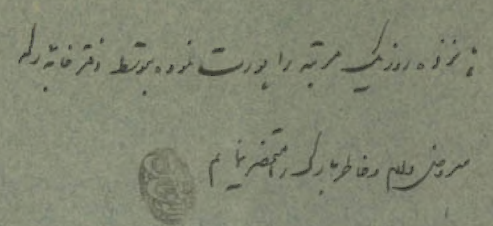 پانزده روز یک مرتبه راپورت نموده بتوسط دفترخانه
معروض دارم و خاطر مبارک را مستحضر نمایم